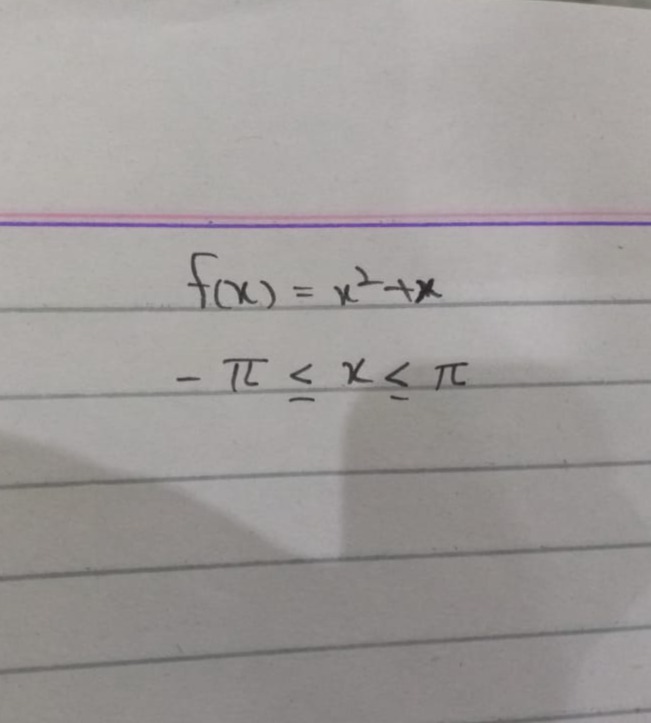 f(x) = x² + x
- π ≤ x ≤ π